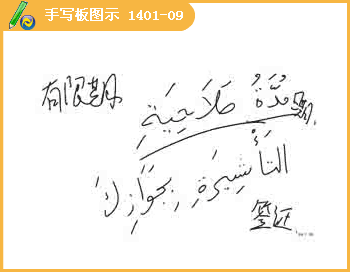 手写板图示 1401-09
有限期
مُدَّةُ صَلَاحِيَةِ
التَأْشِيرَةِ بِجَوَازِكَ
签证